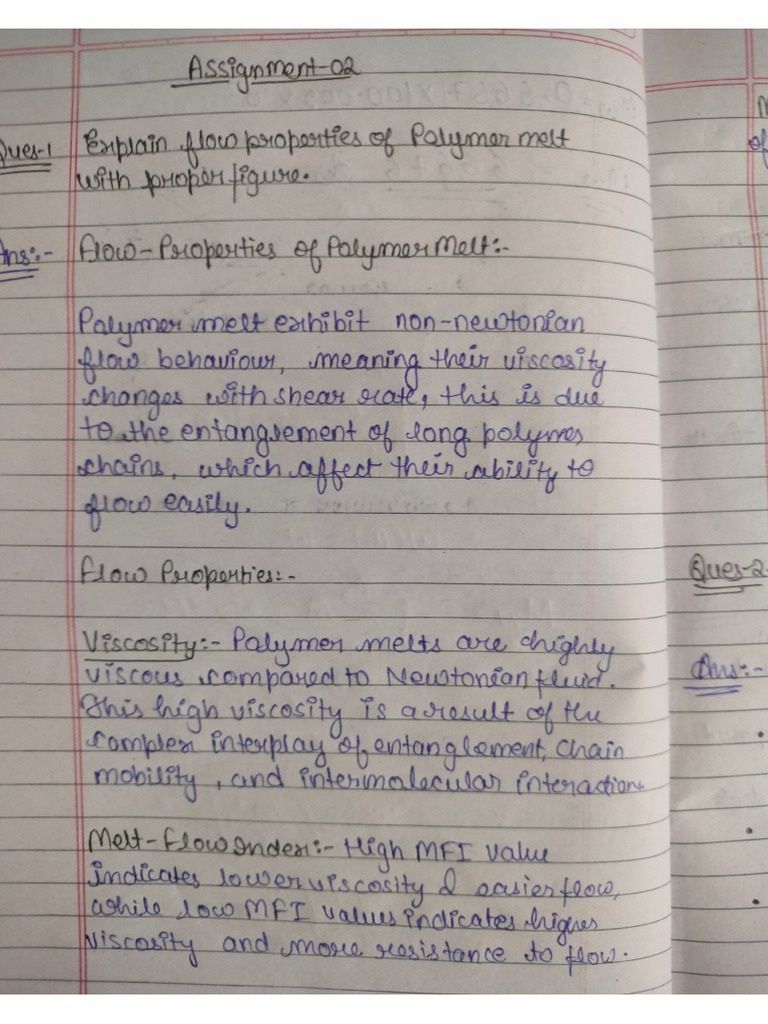 Assignment-02
Ques-1 Explain flow properties of Polymer melt
with proper figure.
Ans:- Flow-Properties of Polymer Melt:-
Polymer melt exhibit non-newtonian
flow behaviour, meaning their viscosity
changes with shear rate, this is due
to the entanglement of long polymer
chains, which affect their ability to
flow easily.
Flow Properties:-
Viscosity:- Polymer melts are highly
viscous compared to Newtonian fluid.
This high viscosity is a result of the
complex interplay of entanglement, chain
mobility, and intermolecular interaction
Melt-Flow Index:- High MFI value
indicates lower viscosity & easier flow,
while low MFI values indicates higher
viscosity and more resistance to flow.
of
Ques-2.
Ans:-